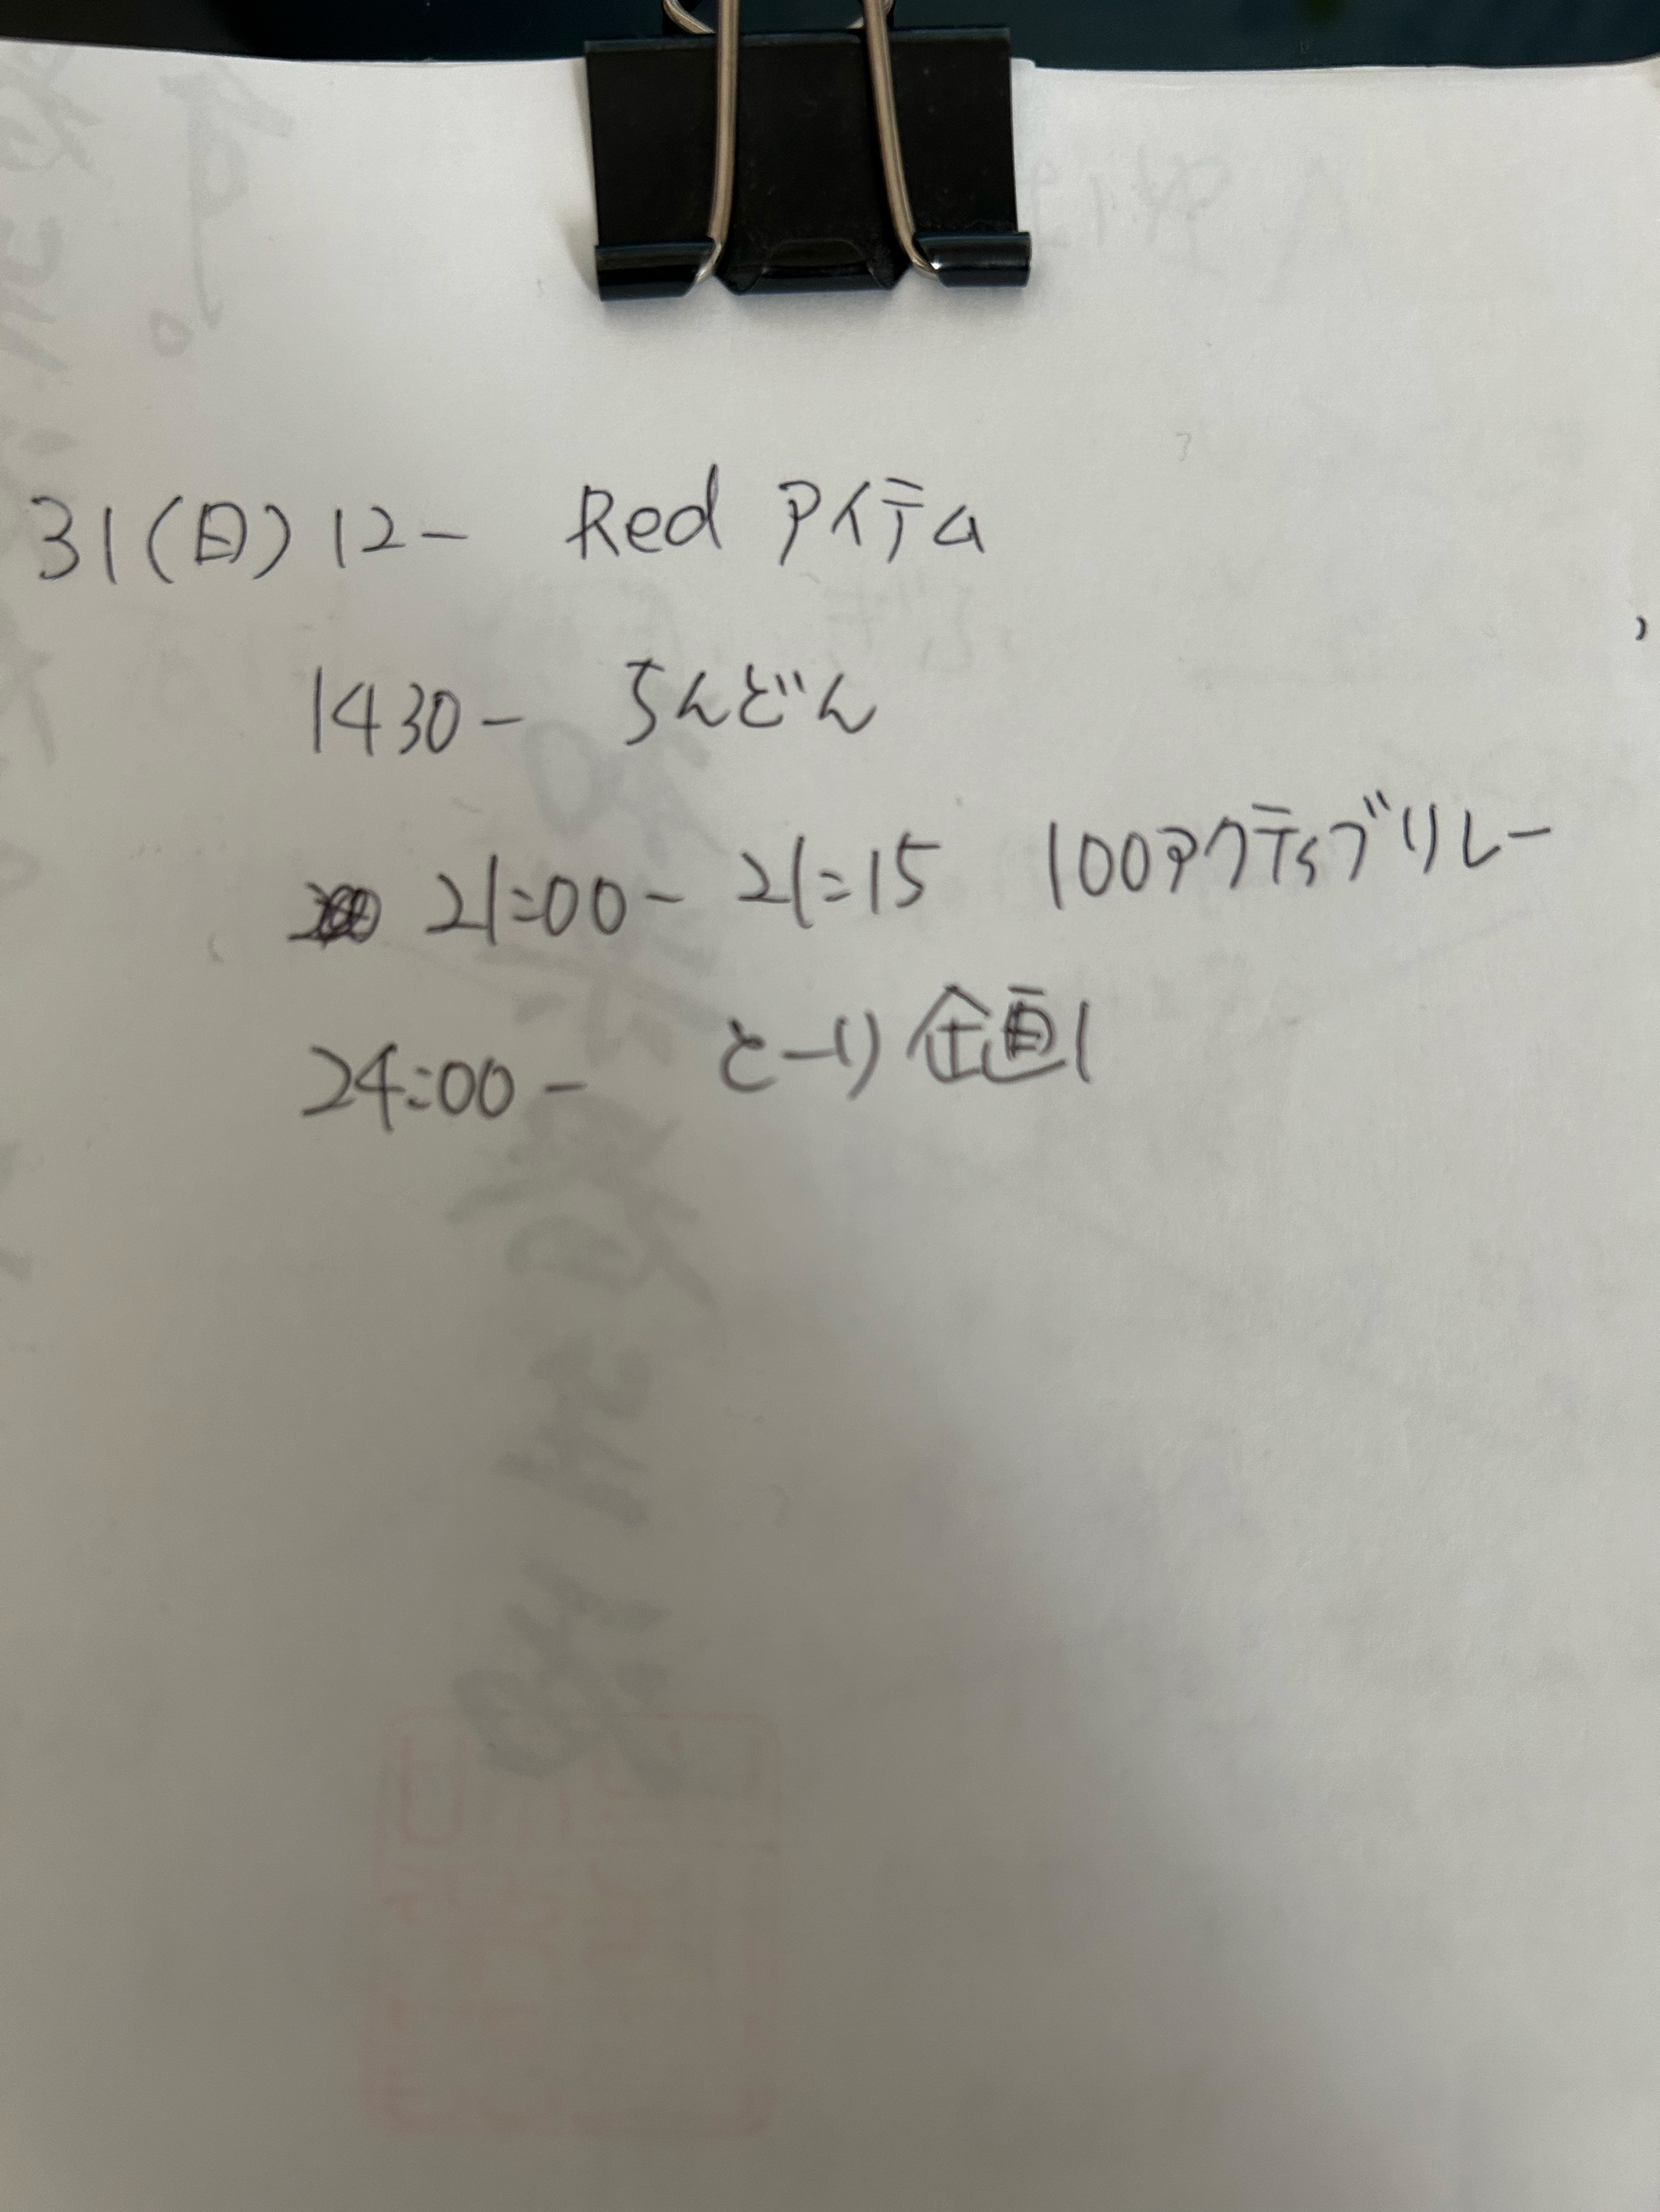 31(日) 12- Red アイテム
1430- ちんどん
21:00- 21:15 100アクティブリレー
24:00- とーり企画1